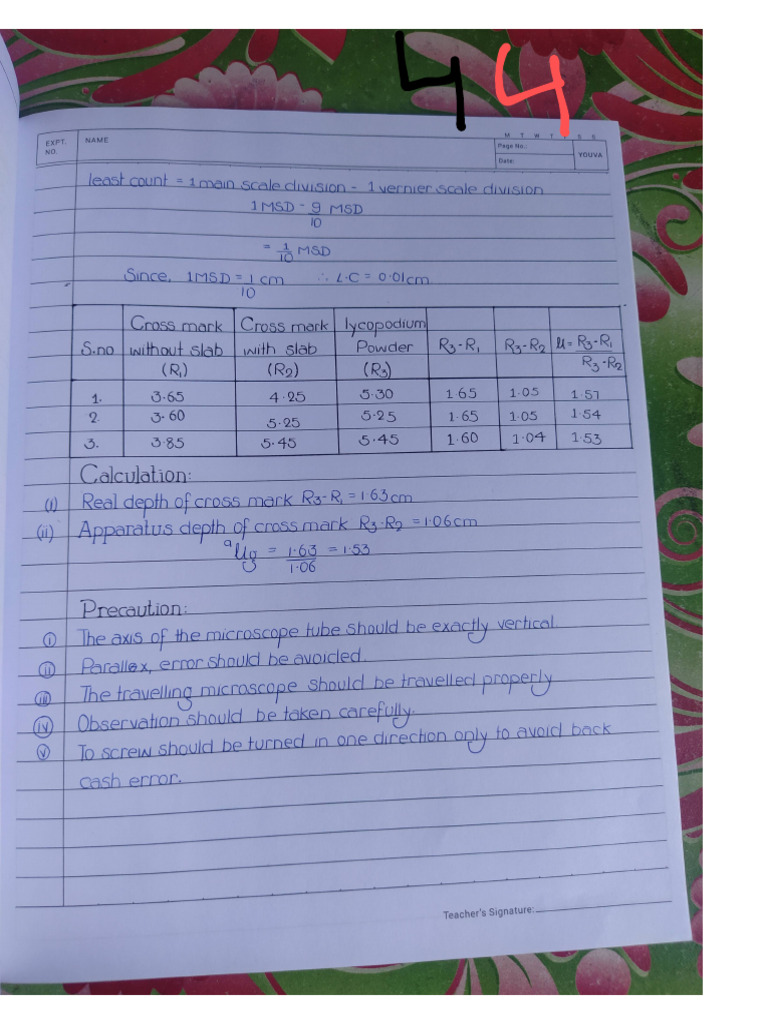 4 4
M T W T F S S
EXPT. NO. NAME Page No.: YOUVA
Date:
least count = 1 main scale division - 1 vernier scale division
1 MSD - 9/10 MSD
= 1/10 MSD
Since, 1MSD = 1/10 cm ∴ L.C = 0.01cm
S.no | Cross mark without slab (R₁) | Cross mark with slab (R₂) | lycopodium Powder (R₃) | R₃-R₁ | R₃-R₂ | u = R₃-R₁/R₃-R₂
1. | 3.65 | 4.25 | 5.30 | 1.65 | 1.05 | 1.57
2. | 3.60 | 5.25 | 5.25 | 1.65 | 1.05 | 1.54
3. | 3.85 | 5.45 | 5.45 | 1.60 | 1.04 | 1.53
Calculation:
(i) Real depth of cross mark R₃-R₁ = 1.63cm
(ii) Apparatus depth of cross mark R₃-R₂ = 1.06cm
ᵃug = 1.63/1.06 = 1.53
Precaution:
(i) The axis of the microscope tube should be exactly vertical.
(ii) Parallex, error should be avoided.
(iii) The travelling microscope should be travelled properly
(iv) Observation should be taken carefully.
(v) To screw should be turned in one direction only to avoid back
cash error.
Teacher's Signature: